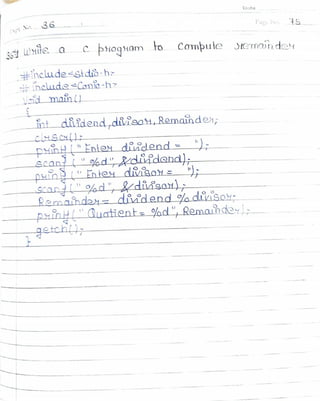 36 75
36) Write a C program to Compute remainder
#include<stdio.h>
#include<Conio.h>
Void main()
{
int dividend, divisor, Remainder;
clrscr();
printf("Enter dividend = ");
scanf("%d", &dividend);
printf("Enter divisor = ");
scanf("%d", &divisor);
Remainder = dividend % divisor;
printf("Quotient = %d", Remainder);
getch();
}